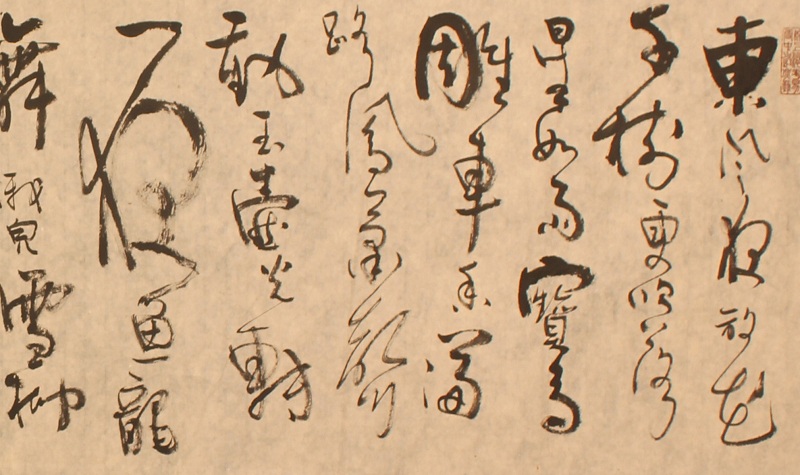 東風夜放花
千樹更吹落
星如雨寶馬
雕車香滿
路鳳簫聲
動玉壺光轉
一夜魚龍
舞蛾兒雪柳